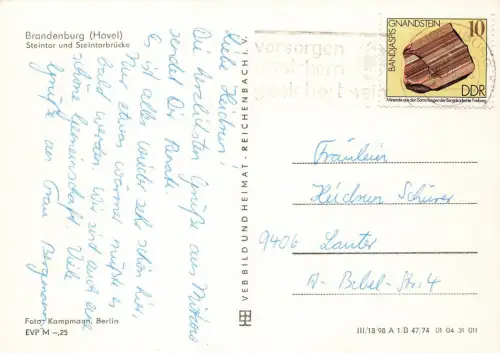 Brandenburg (Havel)
Steintor und Steintorbrücke
Liebe Heidrun!
Die herzlichsten Grüße aus
sendet Dir Renate.
Es ist alles wieder sehr schön hier,
nur etwas wärmer müßte es
bald werden. Wir sind auch eine
schöne Gemeinschaft. Viele
Grüße an Frau Bergmann.
Foto: Kampmann, Berlin
EVP M -,25
VEB BILD UND HEIMAT · REICHENBACH i. V.
vorsorgen
versichern
gesichert sein
BANDJASPIS GNANDSTEIN
10
DDR
Minerale aus den Sammlungen der Bergakademie Freiberg
Fräulein
Heidrun Schürer
9406 Lauter
A-Bebel-Str. 4
III/18/98 A 1/B 47/74 01 04 31 011